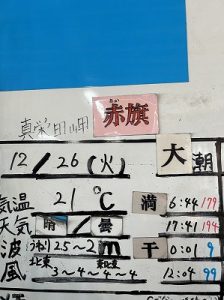 真栄田岬 赤旗
12/26(火) 大潮
気温 21℃ 満 6:44 179
天気 晴/曇 17:41 194
波 うねり2.5~2m 干 0:01 9
風 北東 3~4~4~4 東北東 12:04 99